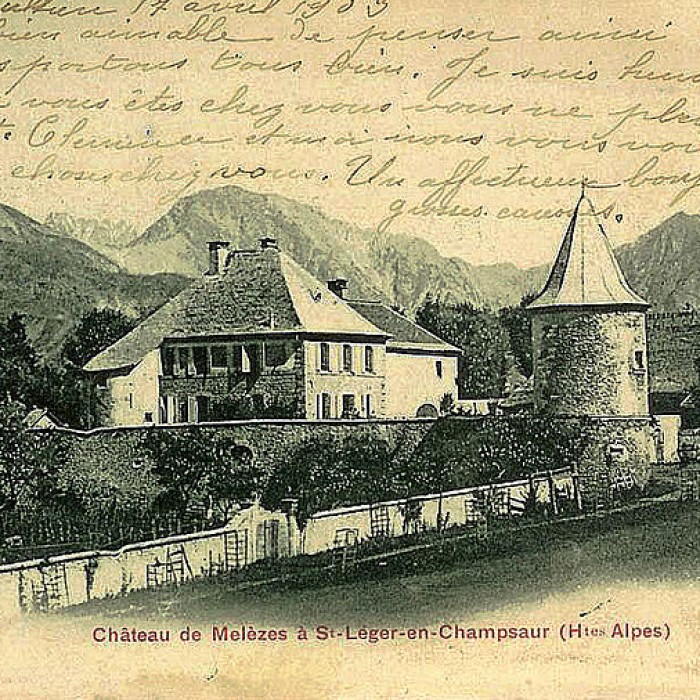 17 avril 1903
bien aimable de penser ainsi
portons tous bien. Je suis
vous êtes chez vous vous ne
Clémence et moi nous vous
chez vous. Un affectueux
Château de Melèzes à St-Léger-en-Champsaur (Htes Alpes)